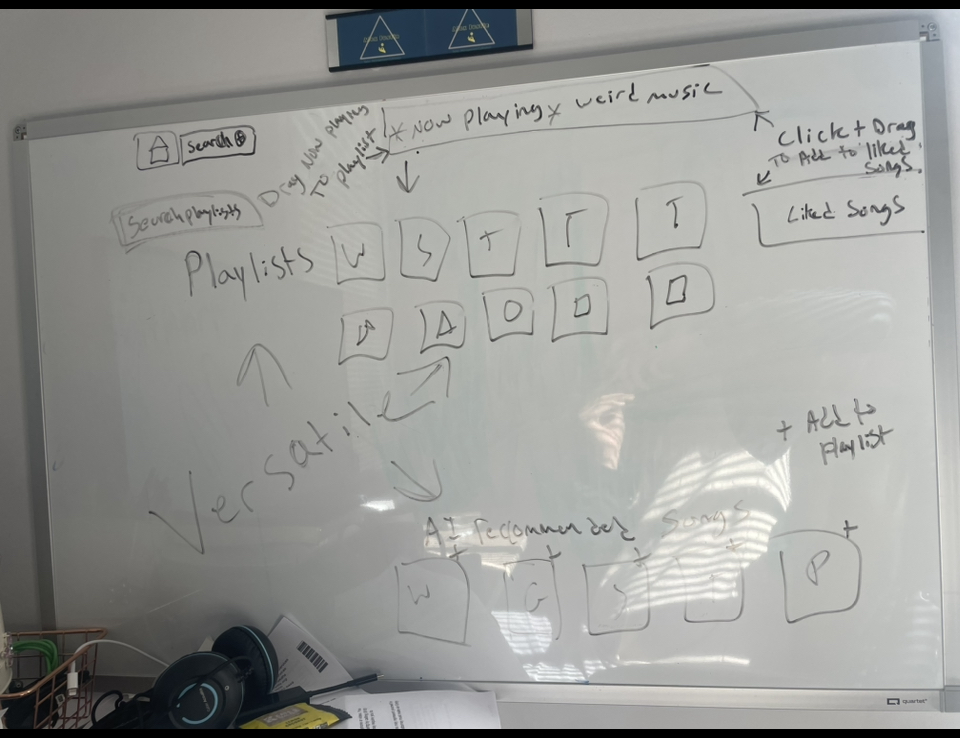 Search
Drag Now playing
To playlist
* Now playing * weird music
Click + Drag
To Add to liked
songs.
Search playlists
Liked Songs
Playlists
W S T T T
Versatile
+ Add to
Playlist
AI recommended songs
+ + + + +
W G S P
quartet